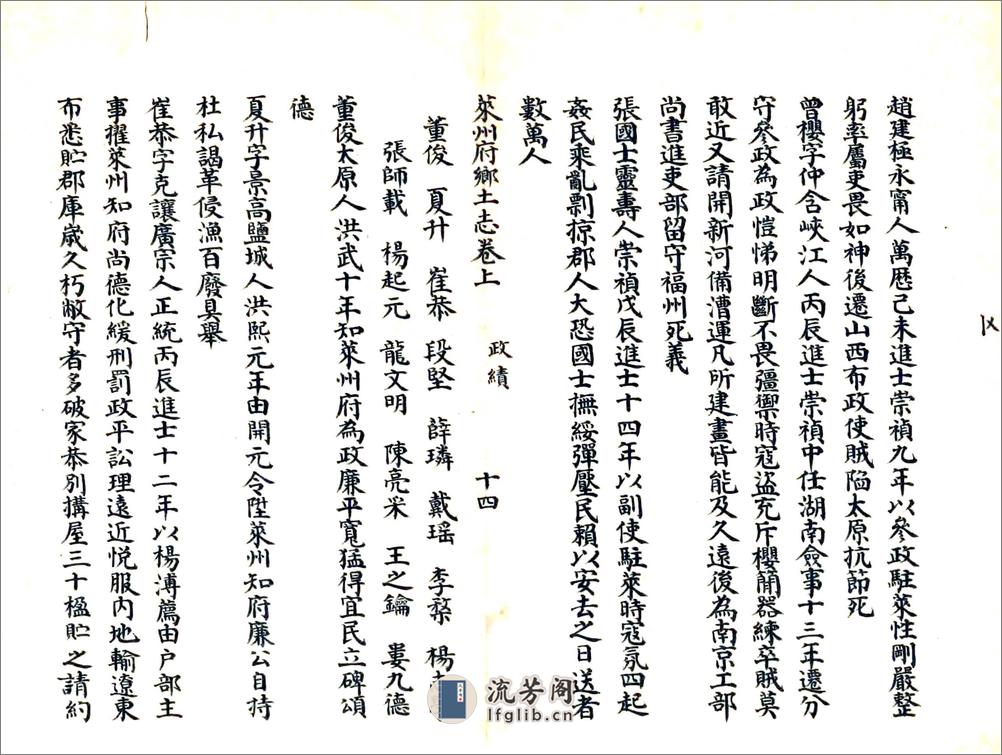 趙建極永甯人萬歷己未進士崇禎九年以參政駐萊性剛嚴整
躬率屬吏畏如神後遷山西布政使賊陷太原抗節死
曾櫻字仲含峽江人丙辰進士崇禎中任湖南僉事十三年遷分
守參政為政愷悌明斷不畏彊禦時寇盜充斥櫻簡器練卒賊莫
敢近又請開新河備漕運凡所建畫皆能及久遠後為南京工部
尚書進吏部留守福州死義
張國士靈壽人崇禎戊辰進士十四年以副使駐萊時寇氛四起
姦民乘亂剽掠郡人大恐國士撫綏彈壓民賴以安去之日送者
數萬人
萊州府鄉土志卷上 政績 十四
董俊 夏升 崔恭 段堅 薛璘 戴瑶 李棃 楊
張師載 楊起元 龍文明 陳亮采 王之鑰 婁九德
董俊太原人洪武十年知萊州府為政廉平寬猛得宜民立碑頌
德
夏升字景高鹽城人洪熙元年由開元令陞萊州知府廉公自持
杜私謁革侵漁百廢具舉
崔恭字克讓廣宗人正統丙辰進士十二年以楊溥薦由户部主
事擢萊州知府尚德化緩刑罰政平訟理遠近悦服内地輸遼東
布悉貯郡庫歲久朽敝守者多破家恭别搆屋三十楹貯之請約
流芳阁
lfglib.cn